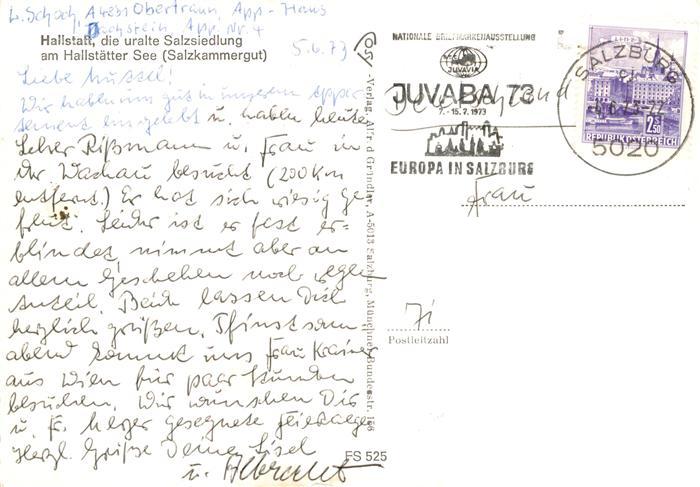 L. Schoch, A 4831 Obertraun, App.-Haus
Dachstein App. Nr. 4
Hallstatt, die uralte Salzsiedlung
am Hallstätter See (Salzkammergut)
5.6.73
Liebe Mussel!
Wir haben uns gut in unserem Appar-
tement eingelebt u. haben heute
Lehrer Rißmann u. Frau in
der Wachau besucht (200 km
entfernt.) Er hat sich riesig ge-
freut. Leider ist er fast er-
blindet, nimmt aber an
allem Geschehen noch regen
Anteil. Beide lassen Dich
herzlich grüßen. Pfingstsonn-
abend kommt uns Frau Krainer
aus Wien für paar Stunden
besuchen. Wir wünschen Dir
u. Fr. gesegnete Feiertage
Herzl. Grüße Deine Lisel
u. Albrecht
FS 525
Verlag Alfred Gründler, A-5013 Salzburg, Münchner Bundesstr. 156
NATIONALE BRIEFMARKENAUSSTELLUNG
JUVAVIA
JUVABA 73
7.-15.7.1973
EUROPA IN SALZBURG
SALZBURG
5020
LINZ
2.50
REPUBLIK ÖSTERREICH
Deutschland
Frau
Postleitzahl